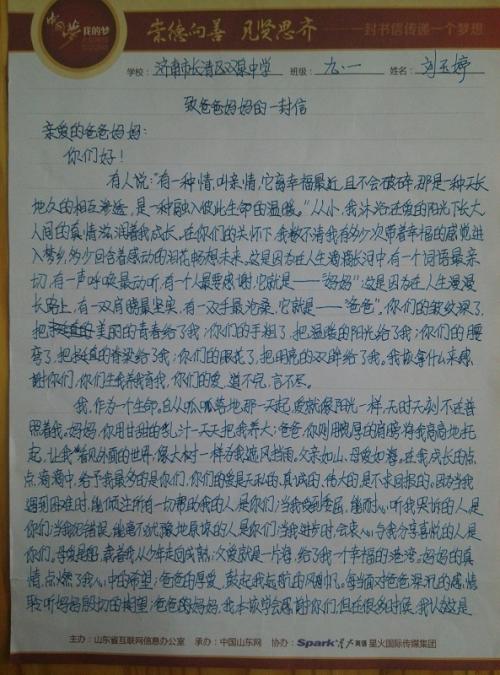 中国梦 我的梦
崇德向善 见贤思齐
一封书信传递一个梦想
学校：济南市长清区双泉中学 班级：九.一 姓名：刘玉婷
致爸爸妈妈的一封信
亲爱的爸爸妈妈：
你们好！
有人说：“有一种情，叫亲情，它离幸福最近，且不会破碎，那是一种天长
地久的相互渗透，是一种融入彼此生命的温暖。”从小，我沐浴在爱的阳光下长大
人间的真情滋润着我成长。在你们的关怀下，我数不清我有多少次带着幸福的感觉进
入梦乡，多少回含着感动的泪花畅想未来，这是因为在人生漫漫长河中，有一个词语最亲
切，有一声呼唤最动听，有一个人最要感谢，它就是——“妈妈”这是因为在人生漫漫
长路上，有一双肩膀最坚实，有一双手最沧桑，它就是——“爸爸”，你们的皱纹深了，
把美丽的青春给了我；你们的手粗了，把温暖的阳光给了我；你们的腰
弯了，把挺直的脊梁给了我；你们的眼花了，把明亮的双眸给了我。我该拿什么来感
谢你们，你们生我养我育我，你们的爱，道不完，言不尽。
我，作为一个生命。自从呱呱落地那一天起，爱就像阳光一样，无时无刻不在普
照着我。妈妈，你用甘甜的乳汁一天天把我养大；爸爸，你则用脱厚的肩膀将我高高地托
起，让我看见外面的世界，像大树一样为我遮风挡雨，父亲如山，母爱如海。在我成长的点
点滴滴中，给予我最多的是你们，你们的爱是无私的，真诚的，伟大的是不求回报的。因为当我
遇到困难时，能倾注所有一切帮助我的人是你们；当我受到委屈，能耐心听我哭诉的人是
你们；当我犯错误，能毫不犹豫地原谅的人是你们；当我进步时，会衷心为我分享喜悦的人是
你们。母爱是船，载着我从少年走向成熟；父爱就是一片海，给了我一个幸福的港湾。妈妈的真
情，点燃了我心中的希望；爸爸的厚爱，鼓起我远航的风帆。每当面对爸爸深沉的感情
聆听妈妈殷切的期望，爸爸，妈妈，我本该学会感谢你们，但在很多时候，我认为这是
主办：山东省互联网信息办公室 承办：中国山东网 协办：Spark 星火英语 星火国际传媒集团